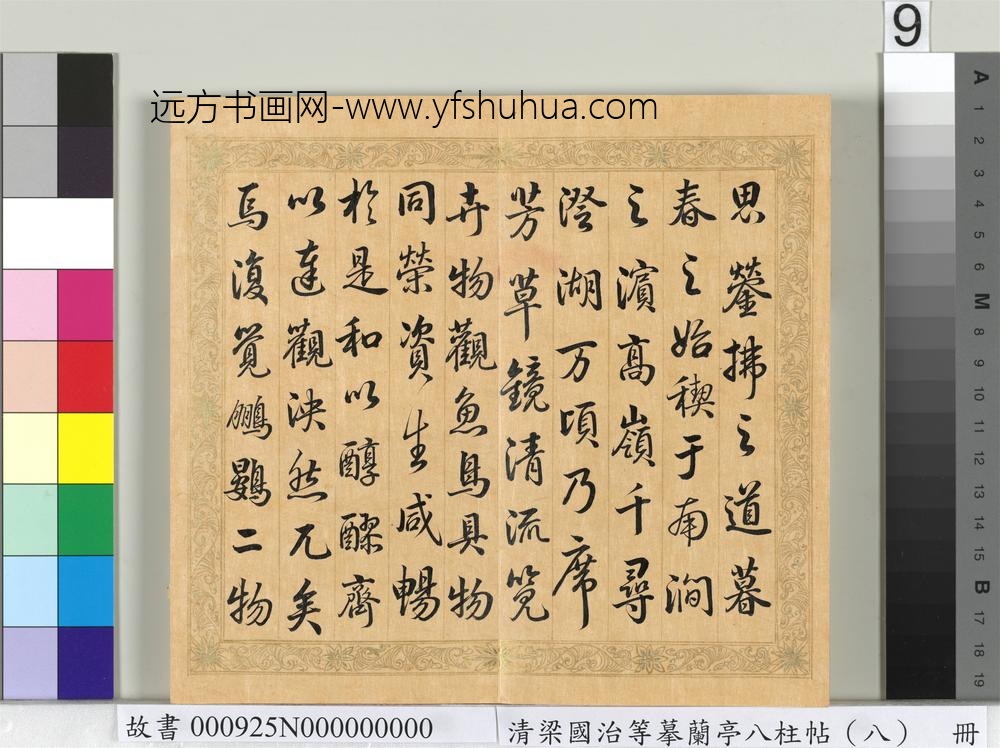 9
远方书画网-www.yfshuhua.com
思鎣拂之道暮
春之始禊于南澗
之濱高嶺千尋
澄湖万頃乃席
芳草鏡清流覽
卉物觀魚鳥具物
同榮資生咸暢
於是和以醇醪齊
以達觀泱然兀矣
焉復覺鵬鷃二物
A 1 2 3 4 5 6 M 8 9 10 11 12 13 14 15 B 17 18 19
故書 000925N000000000
清梁國治等摹蘭亭八柱帖（八） 冊